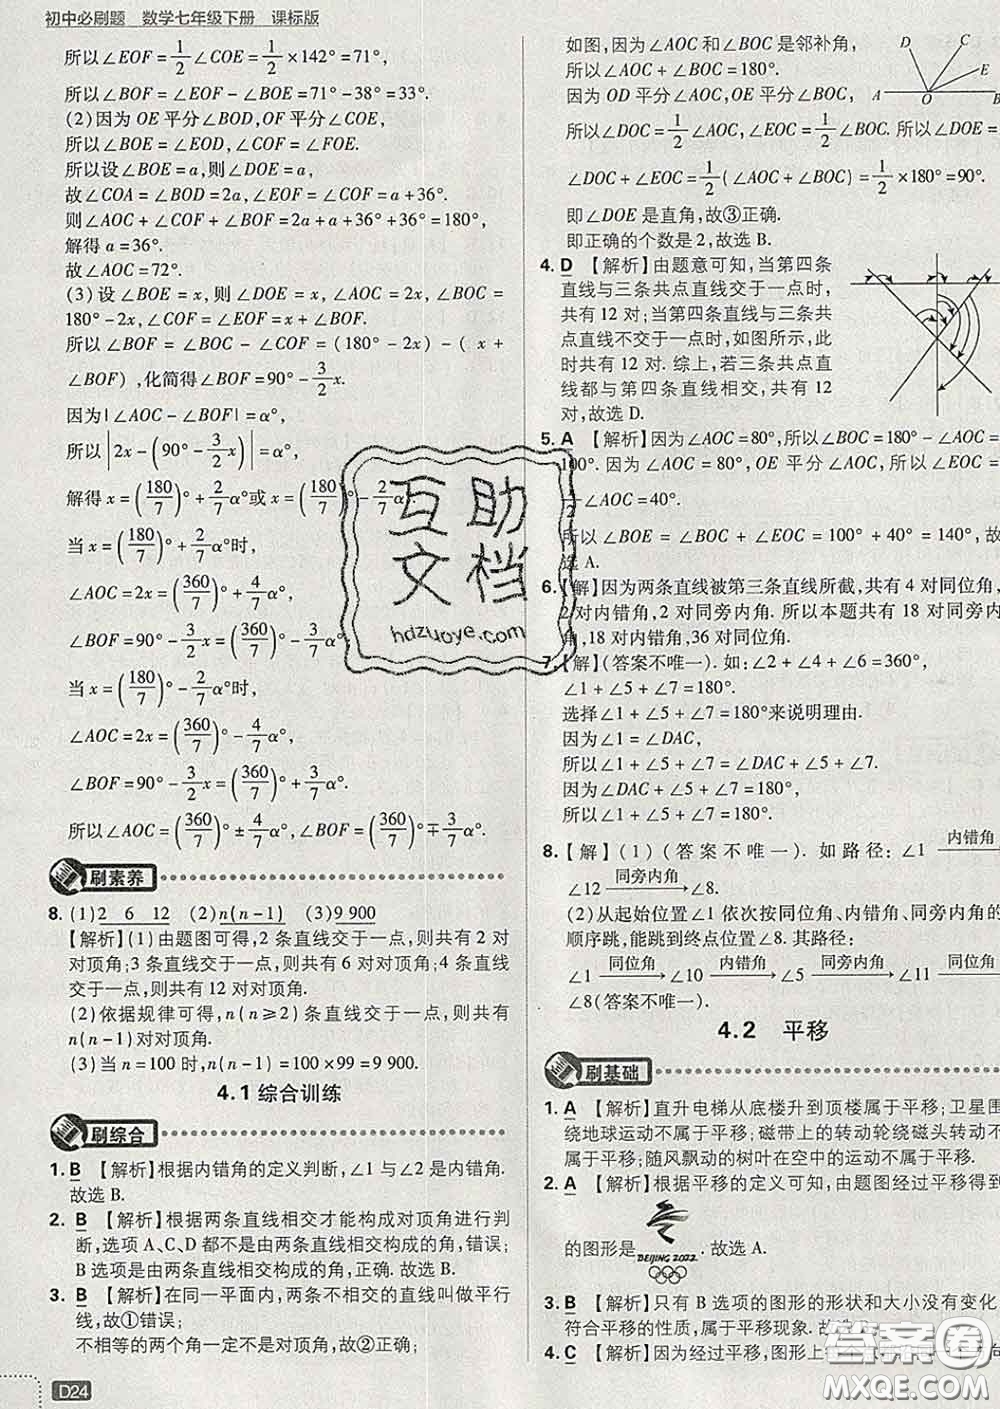 初中必刷题 数学七年级下册 课标版
所以∠EOF=1/2∠COE=1/2×142°=71°,
所以∠BOF=∠EOF-∠BOE=71°-38°=33°.
(2)因为OE平分∠BOD,OF平分∠COE,
所以∠BOE=∠EOD,∠COF=∠FOE.
所以设∠BOE=a,则∠DOE=a,
故∠COA=∠BOD=2a,∠EOF=∠COF=a+36°.
则∠AOC+∠COF+∠BOF=2a+a+36°+36°=180°,
解得a=36°.
故∠AOC=72°.
(3)设∠BOE=x,则∠DOE=x,∠AOC=2x,∠BOC=
180°-2x,∠COF=∠EOF=x+∠BOF.
所以∠BOF=∠BOC-∠COF=(180°-2x)-(x+
∠BOF),化简得∠BOF=90°-3/2x.
因为|∠AOC-∠BOF|=α°,
所以|2x-(90°-3/2x)|=α°,
解得x=(180/7)°+2/7α°或x=(180/7)°-2/7α°.
当x=(180/7)°+2/7α°时,
∠AOC=2x=(360/7)°+4/7α°,
∠BOF=90°-3/2x=(360/7)°-3/7α°;
当x=(180/7)°-2/7α°时,
∠AOC=2x=(360/7)°-4/7α°,
∠BOF=90°-3/2x=(360/7)°+3/7α°.
所以∠AOC=(360/7)°±4/7α°,∠BOF=(360/7)°∓3/7α°.
刷素养
8. (1)2 6 12 (2)n(n-1) (3)9 900
【解析】(1)由题图可得,2条直线交于一点,则共有2对
对顶角;3条直线交于一点,则共有6对对顶角;4条直线
交于一点,则共有12对对顶角.
(2)依据规律可得,n(n≥2)条直线交于一点,则共有
n(n-1)对对顶角.
(3)当n=100时,n(n-1)=100×99=9 900.
4.1 综合训练
刷综合
1. B 【解析】根据内错角的定义判断,∠1与∠2是内错角.
故选B.
2. B 【解析】根据两条直线相交才能构成对顶角进行判
断,选项A、C、D都不是由两条直线相交构成的角,错误;
B选项是由两条直线相交构成的角,正确.故选B.
3. B 【解析】在同一平面内,两条不相交的直线叫做平行
线,故①错误;
不相等的两个角一定不是对顶角,故②正确;
D24
如图,因为∠AOC和∠BOC是邻补角,
所以∠AOC+∠BOC=180°.
因为OD平分∠AOC,OE平分∠BOC,
D C E A O B
所以∠DOC=1/2∠AOC,∠EOC=1/2∠BOC.所以∠DOE=
∠DOC+∠EOC=1/2(∠AOC+∠BOC)=1/2×180°=90°.
即∠DOE是直角,故③正确.
即正确的个数是2,故选B.
4. D 【解析】由题意可知,当第四条
直线与三条共点直线交于一点时,
共有12对;当第四条直线与三条共
点直线不交于一点时,如图所示,此
时共有12对.综上,若三条共点直
线都与第四条直线相交,共有12
对,故选D.
5. A 【解析】因为∠AOC=80°,所以∠BOC=180°-∠AOC=
100°.因为∠AOC=80°,OE平分∠AOC,所以∠EOC=
1/2∠AOC=40°.
所以∠BOE=∠BOC+∠EOC=100°+40°=140°,故
选A.
6.【解】因为两条直线被第三条直线所截,共有4对同位角,
2对内错角,2对同旁内角.所以本题共有18对同旁内
角,18对内错角,36对同位角.
7.【解】(答案不唯一).如:∠2+∠4+∠6=360°,
∠1+∠5+∠7=180°.
选择∠1+∠5+∠7=180°来说明理由.
因为∠1=∠DAC,
所以∠1+∠5+∠7=∠DAC+∠5+∠7.
因为∠DAC+∠5+∠7=180°,
所以∠1+∠5+∠7=180°.
8.【解】(1)(答案不唯一).如路径:∠1 内错角→
∠12 同旁内角→∠8.
(2)从起始位置∠1依次按同位角、内错角、同旁内角的
顺序跳,能跳到终点位置∠8.其路径:
∠1 同位角→∠10 内错角→∠5 同旁内角→∠11 同位角→
∠8(答案不唯一).
4.2 平移
刷基础
1. A 【解析】直升电梯从底楼升到顶楼属于平移;卫星围
绕地球运动不属于平移;磁带上的转动轮绕磁头转动不
属于平移;随风飘动的树叶在空中的运动不属于平移.
2. A 【解析】根据平移的定义可知,由题图经过平移得到
的图形是 BEIJING 2022 .故选A.
3. B 【解析】只有B选项的图形的形状和大小没有变化,
符合平移的性质,属于平移现象.故选B.
4. C 【解析】因为经过平移,图形上的
互助
文档
hdzuoye.com
答案圈
MXQE.COM